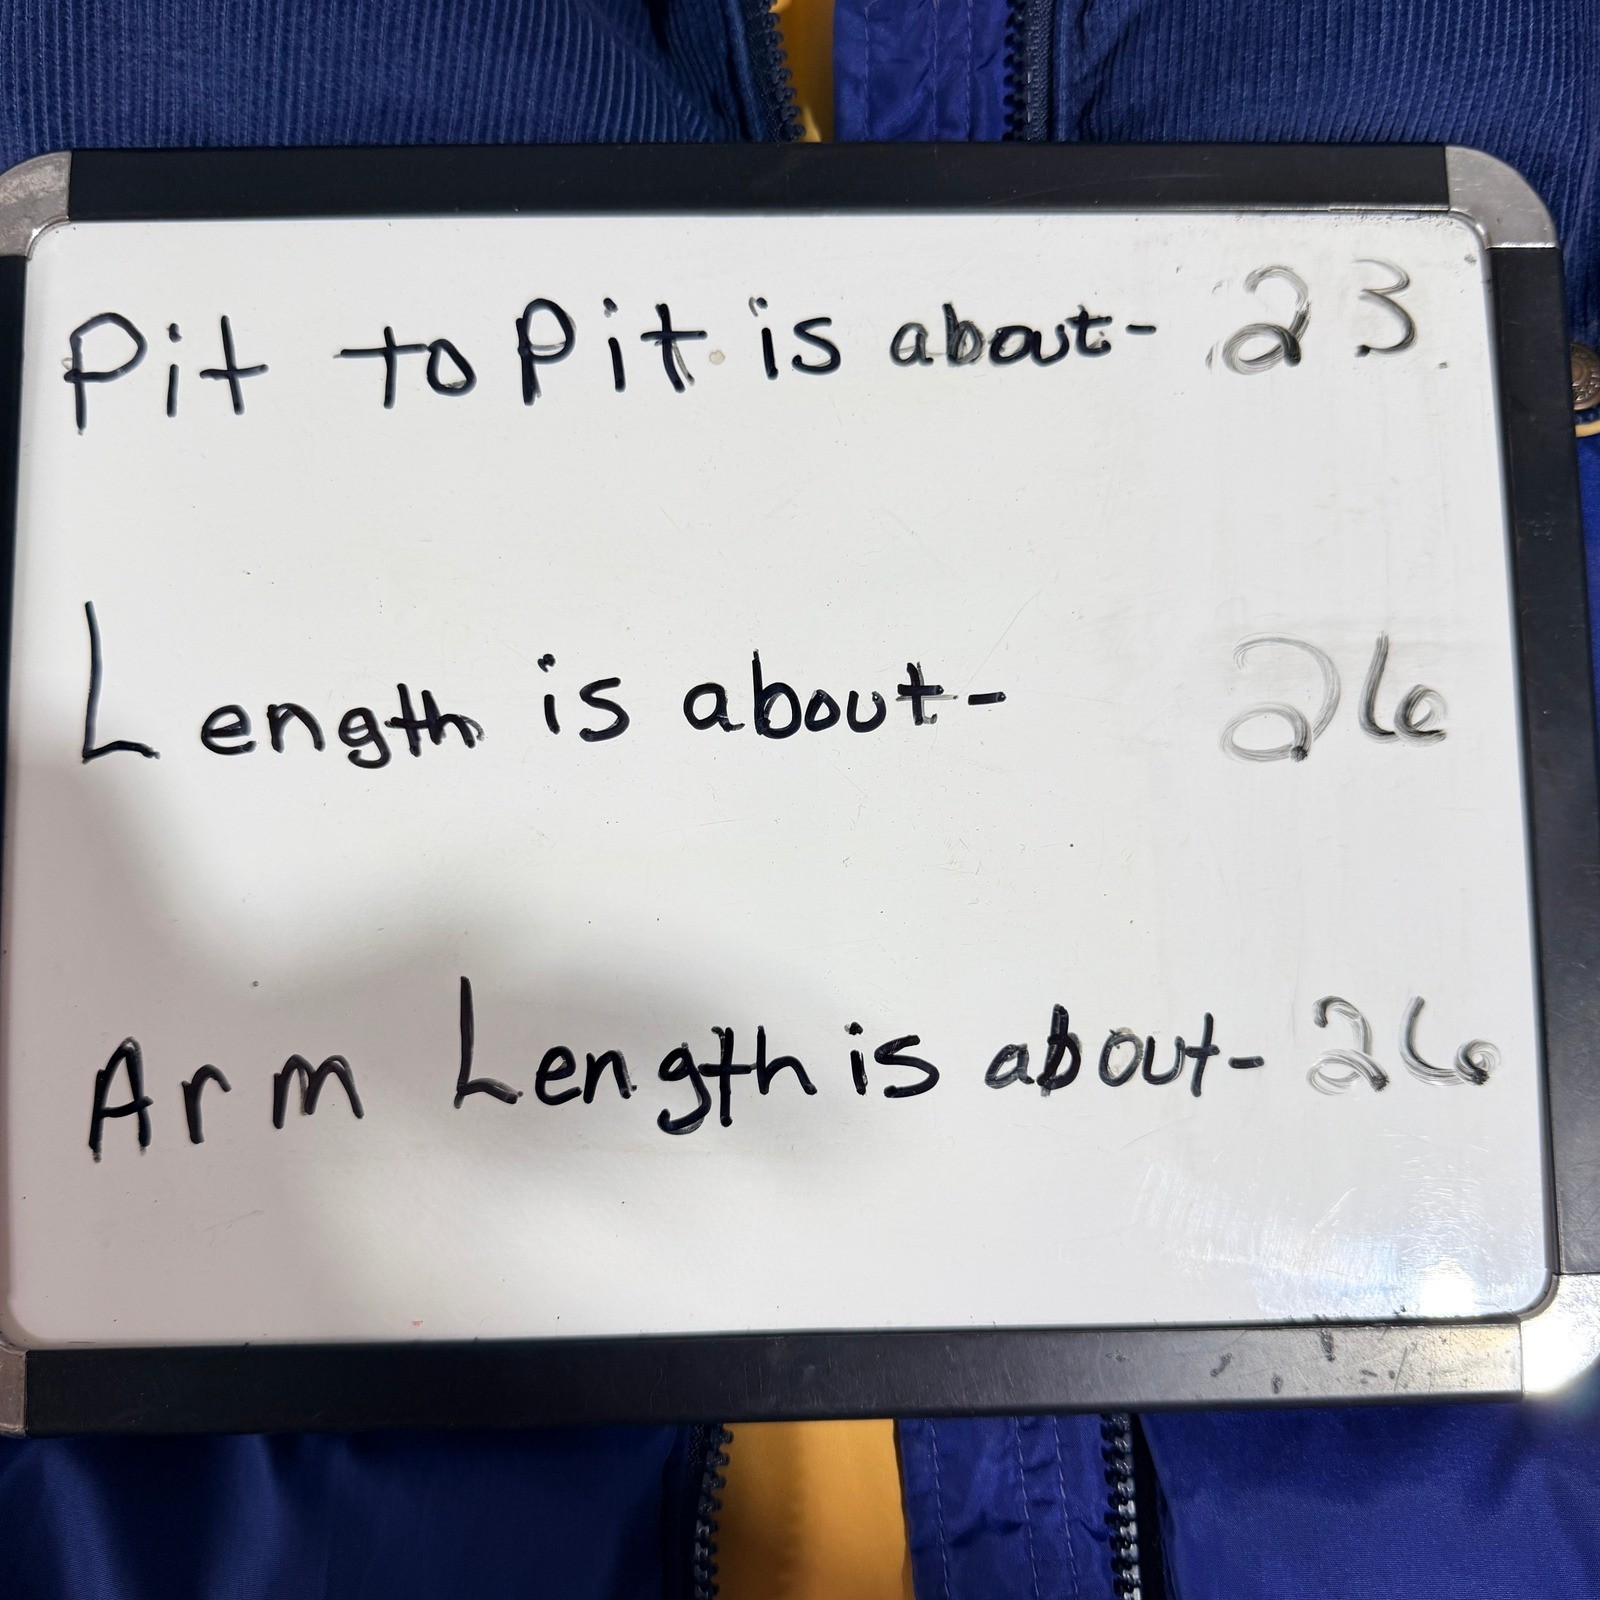 Pit to Pit is about- 23
Length is about- 26
Arm Length is about- 26